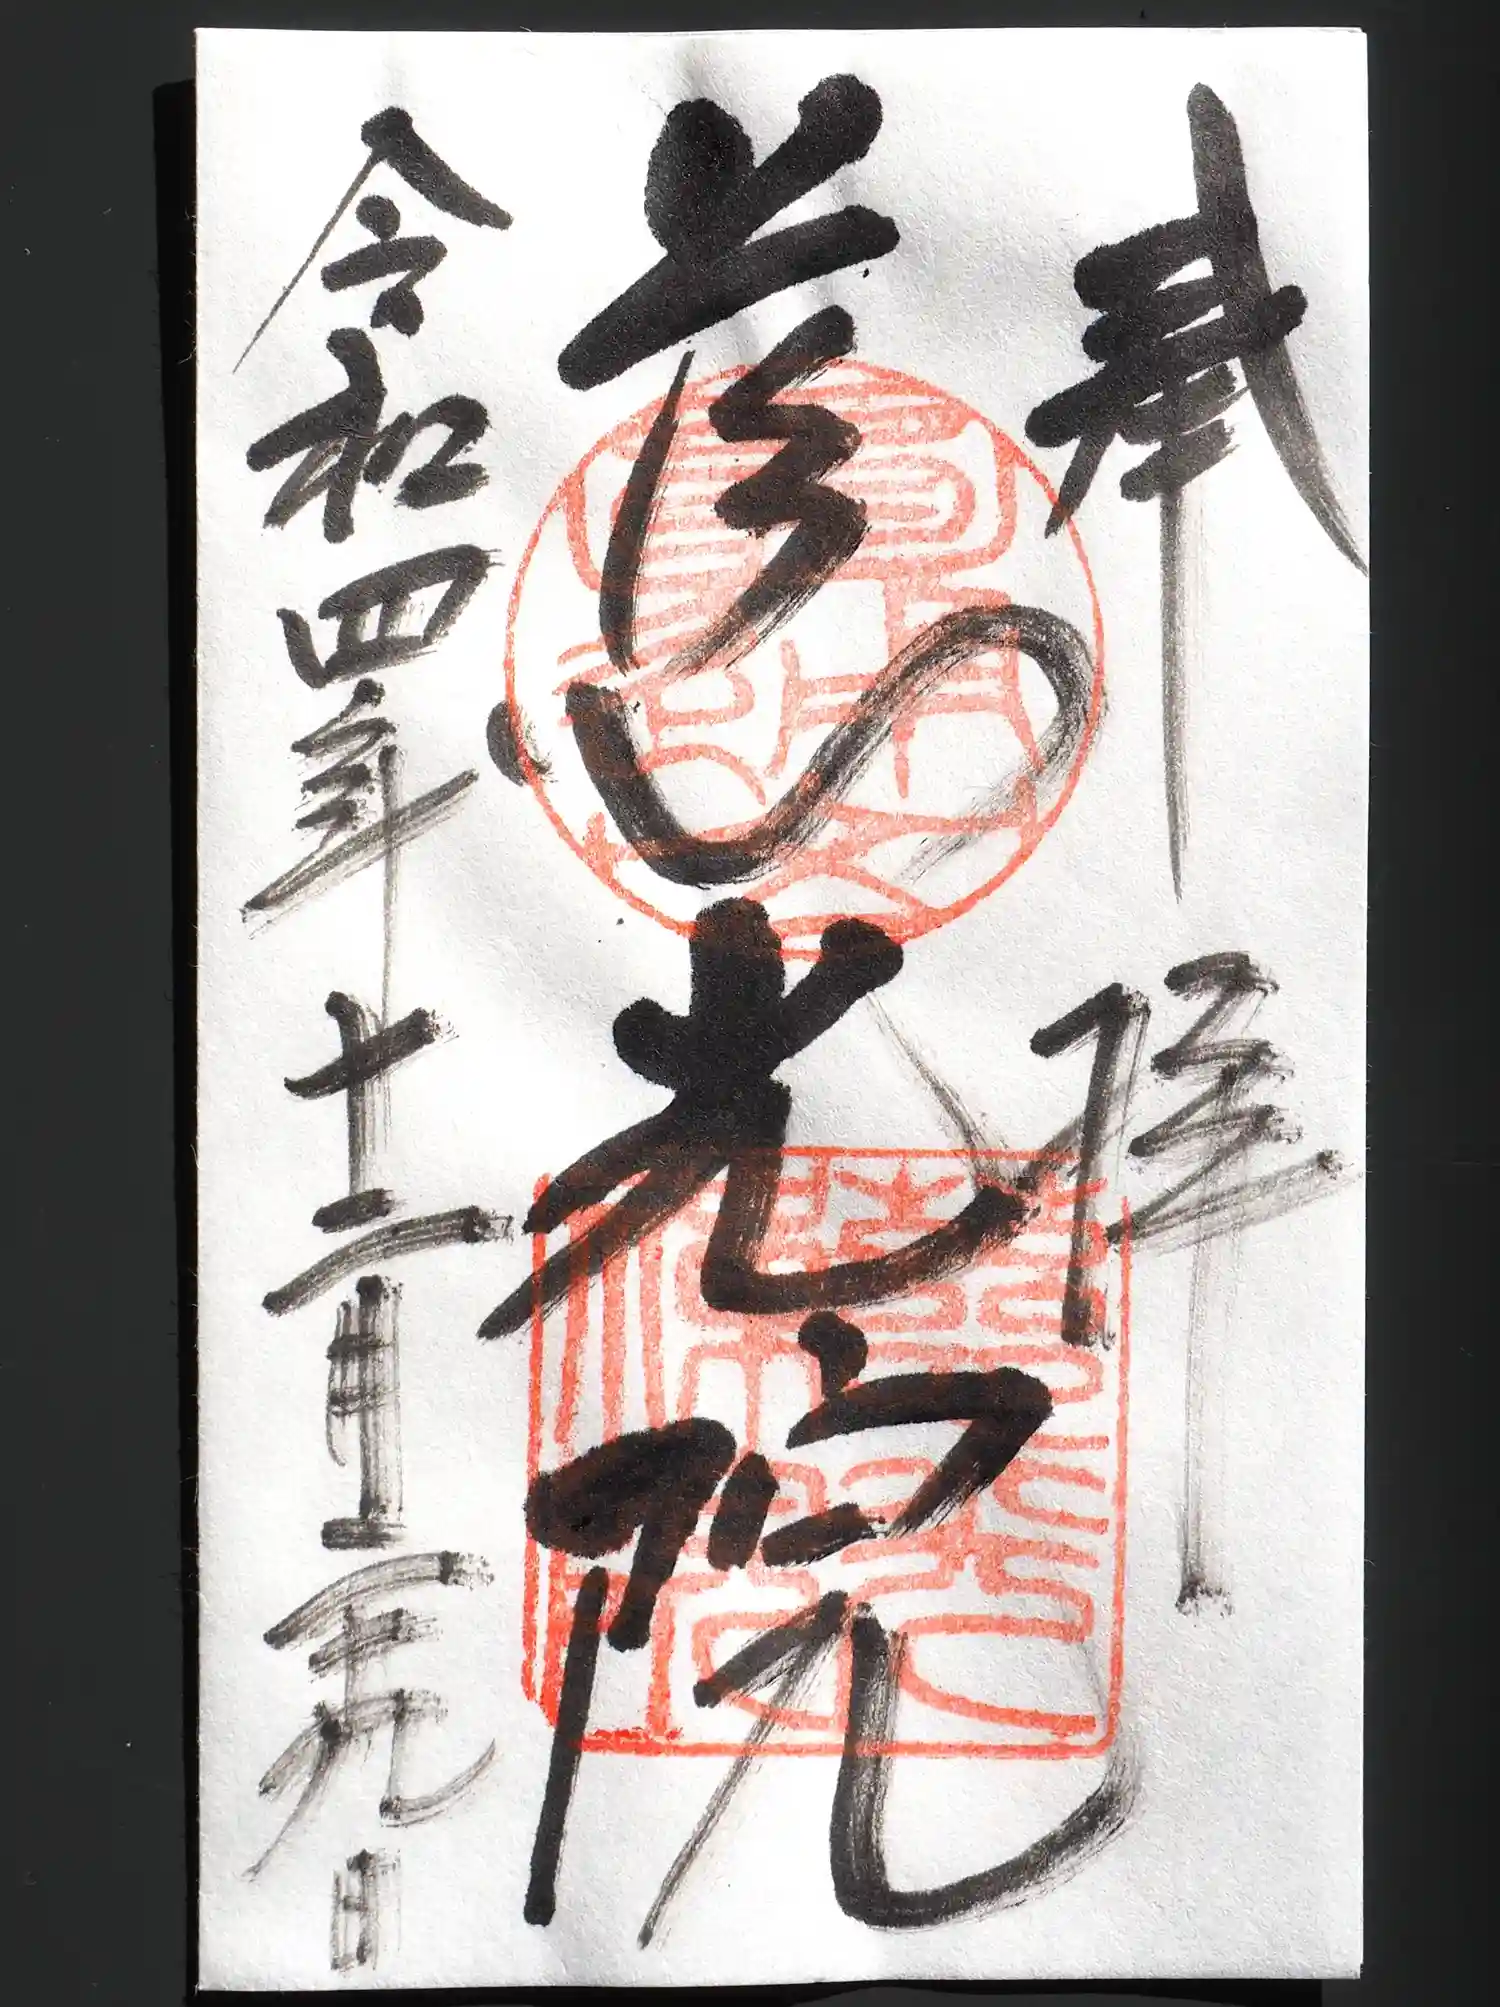 奉拝
慈光院
令和四年十二月二十九日